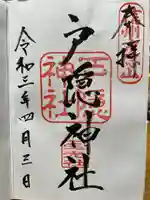 奉拝
戸隠神社
令和三年四月三日